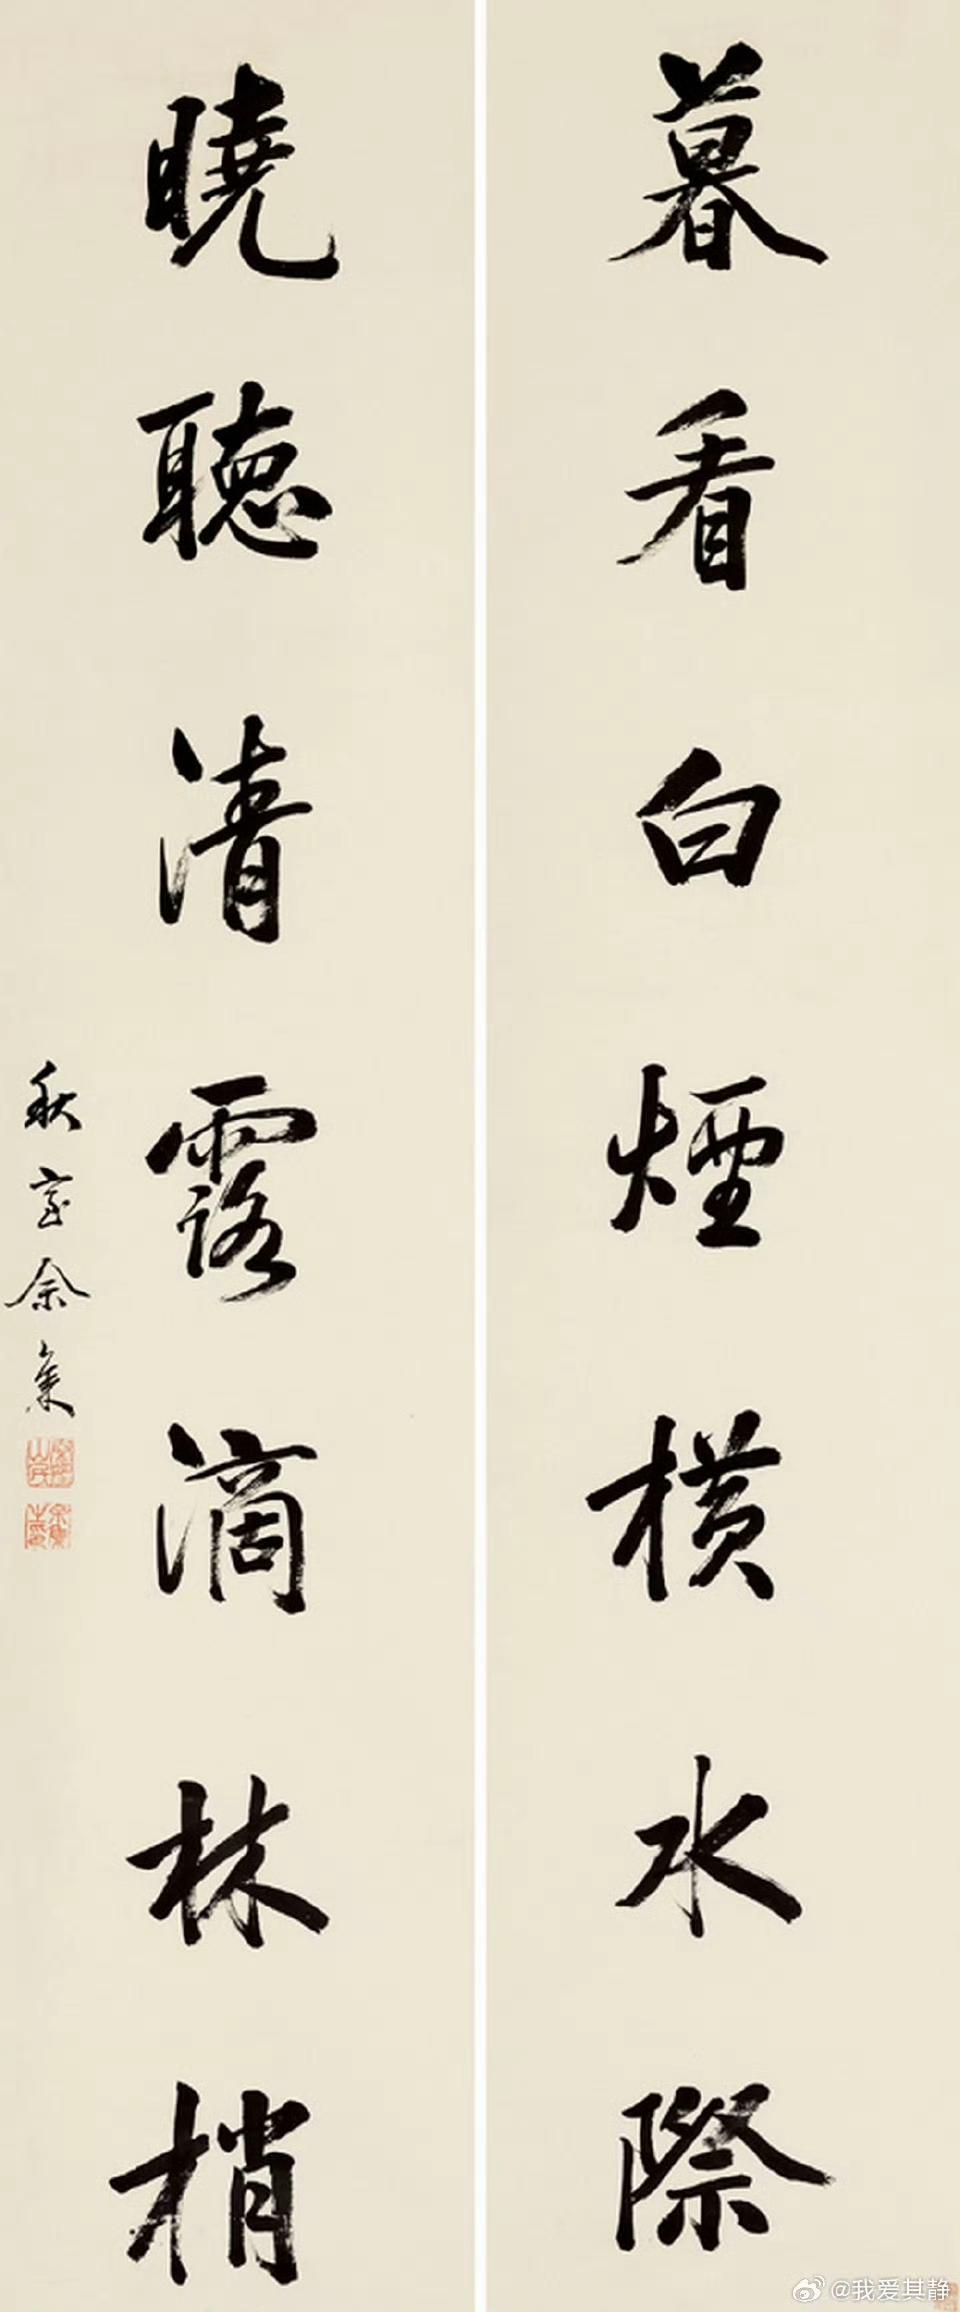 暮看白煙橫水際
曉聽清露滴林梢
秋室余集
@我爱其静